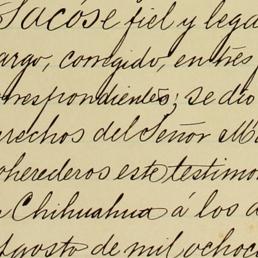 Sacóse fiel y lega
argo, corregido, en tres
rrespondientes; se dio
erechos del Señor Ma
oherederos este testimo
n Chihuahua á los d
Agosto de mil ochoc